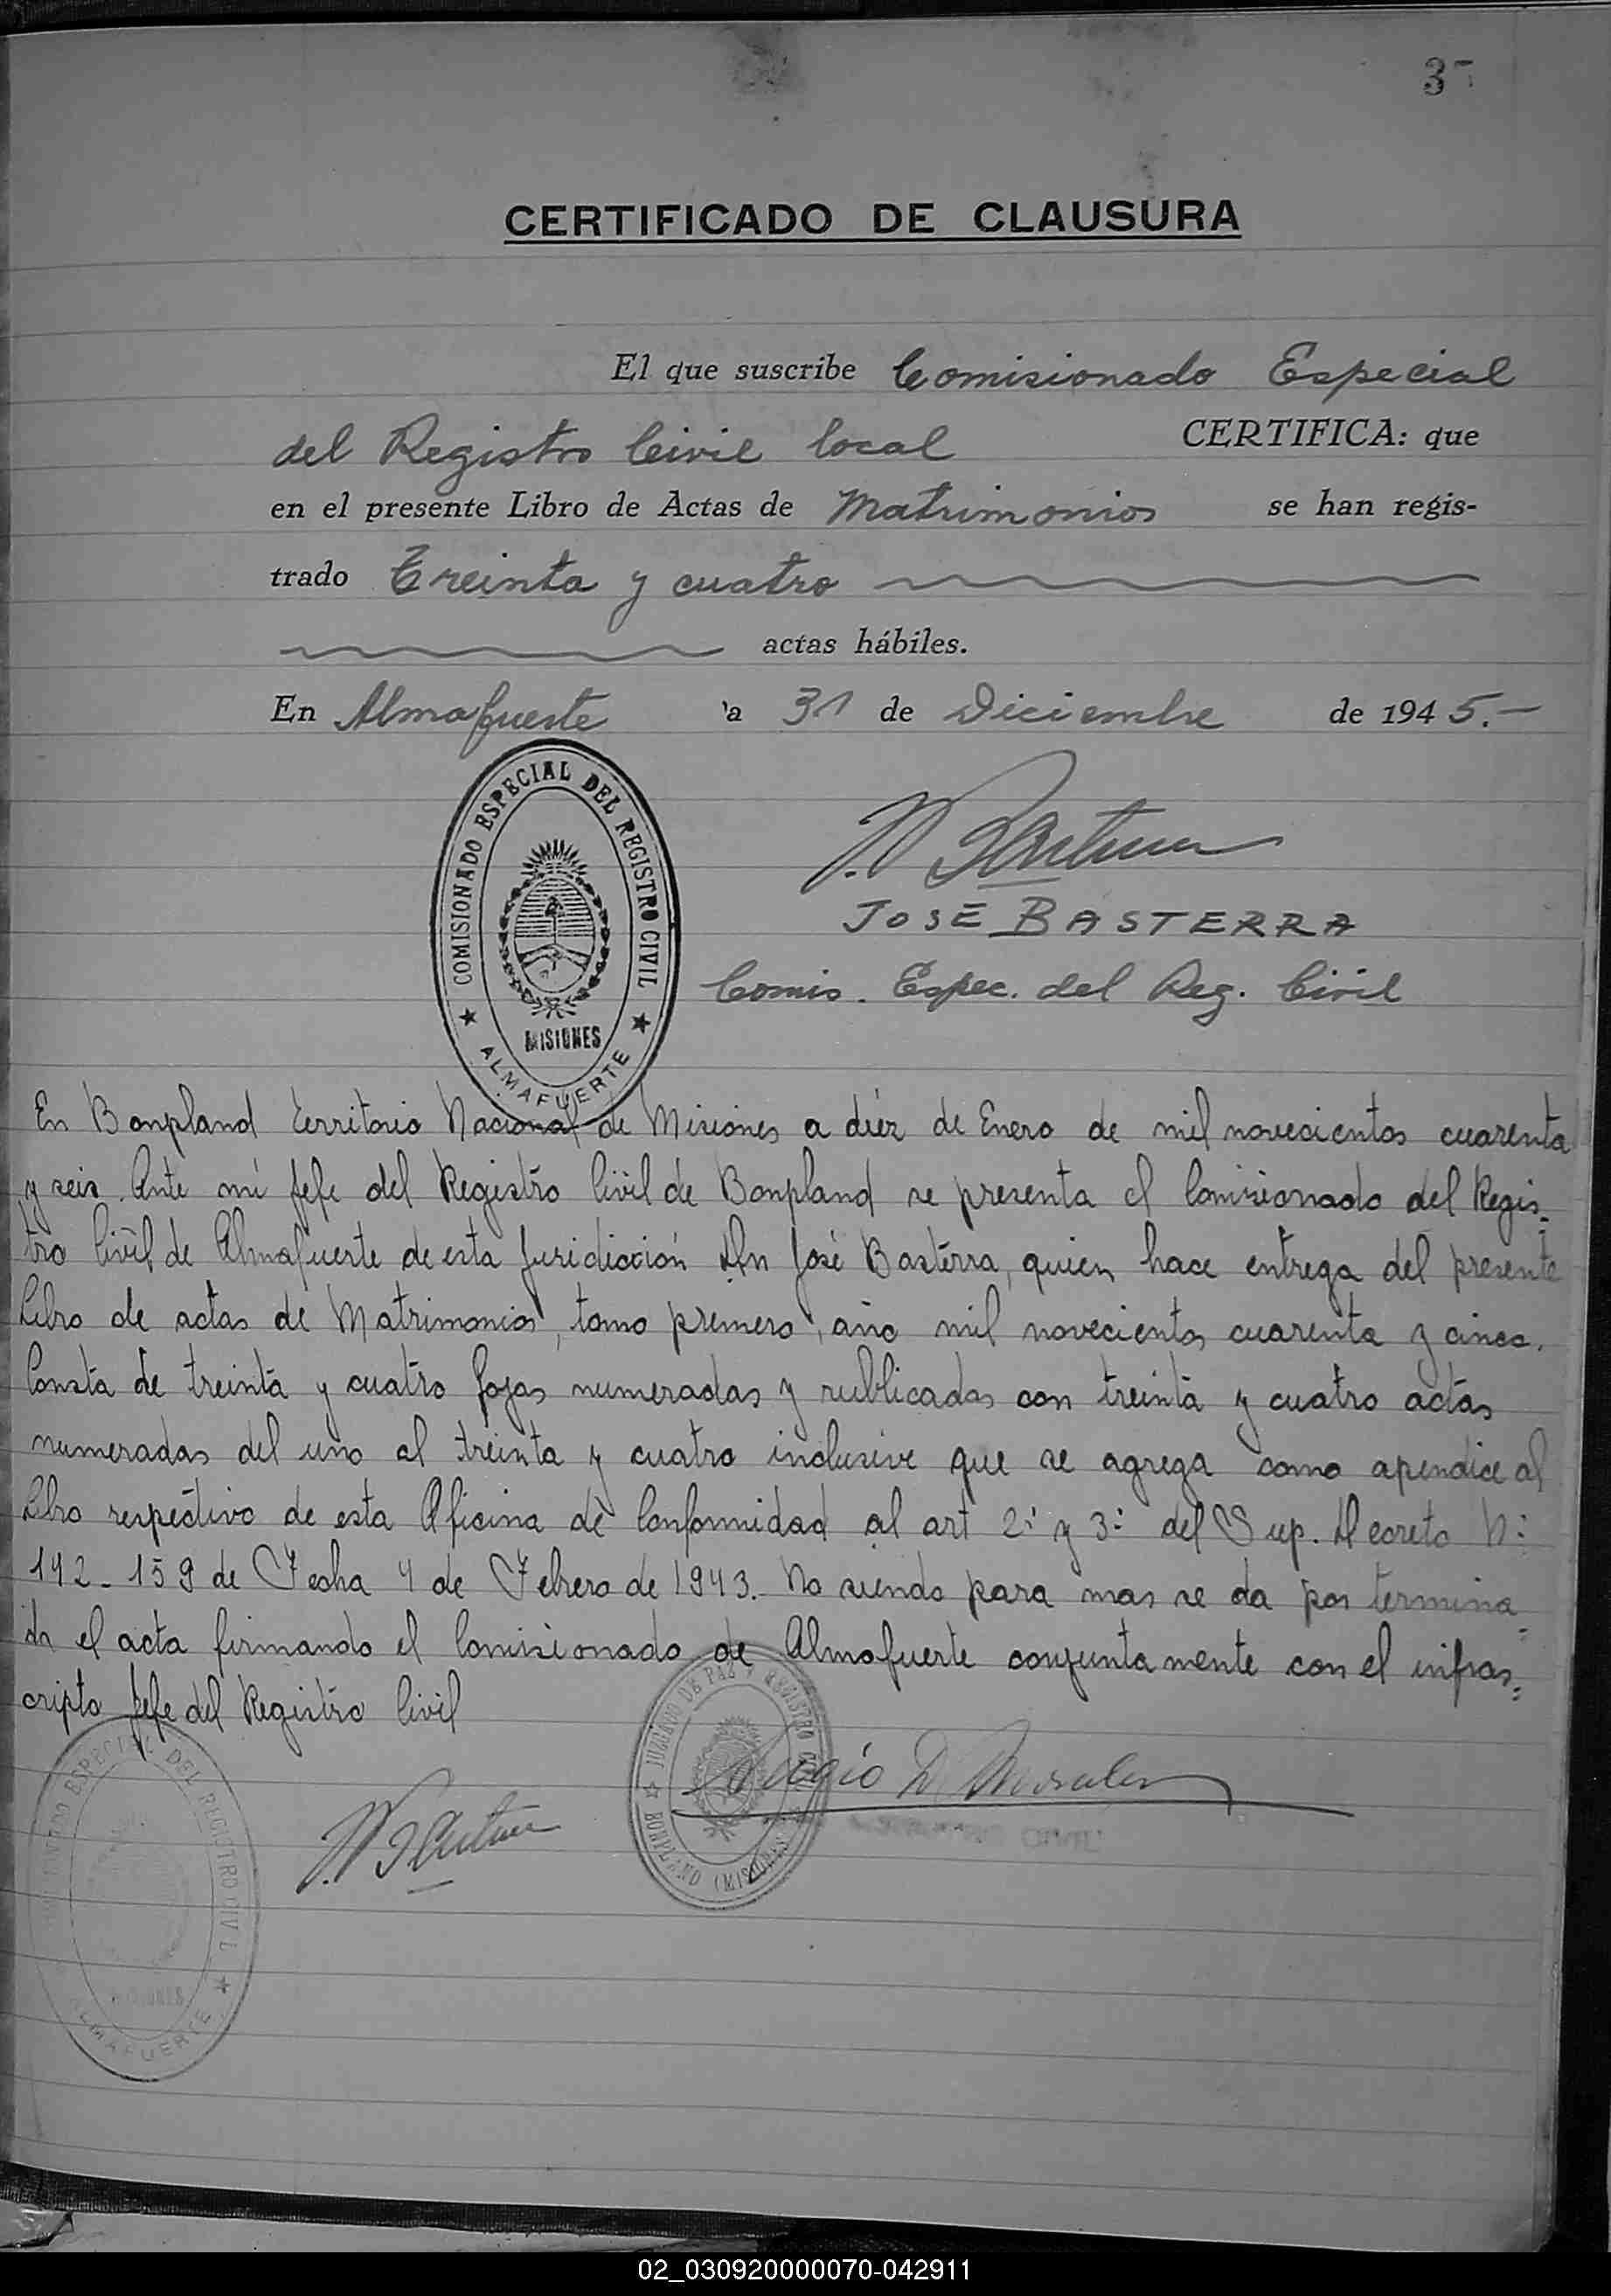 3
CERTIFICADO DE CLAUSURA
El que suscribe Comisionado Especial
del Registro Civil local CERTIFICA: que
en el presente Libro de Actas de Matrimonios se han regis-
trado Treinta y cuatro
actas hábiles.
En Almafuerte a 31 de Diciembre de 1945.-
JOSÉ BASTERRA
Comis. Espec. del Reg. Civil
COMISIONADO ESPECIAL DEL REGISTRO CIVIL
MISIONES
ALMAFUERTE
En Bonpland Territorio Nacional de Misiones a diéz de Enero de mil novecientos cuarenta
y seis. Ante mí Jefe del Registro Civil de Bonpland se presenta el Comisionado del Regis-
tro Civil de Almafuerte de esta Juridicción Dn José Basterra, quien hace entrega del presente
Libro de actas de Matrimonios, tomo primero, año mil novecientos cuarenta y cinco.
Consta de treinta y cuatro fojas numeradas y rublicadas con treinta y cuatro actas
numeradas del uno al treinta y cuatro inclusive que se agrega como apendice al
Libro respectivo de esta Oficina de Conformidad al art 2: y 3: del Sup. Decreto N:
142-159 de Fecha 4 de Febrero de 1943.- No siendo para mas se da por termina-
da el acta firmando el Comisionado de Almafuerte conjuntamente con el infras-
cripto Jefe del Registro Civil
ESPECIAL DEL REGISTRO CIVIL
MISIONES
ALMAFUERTE
JUZGADO DE PAZ Y REGISTRO CIVIL
BONPLAND (MISIONES)
Sergio D. Morales
CIVIL
02_030920000070-042911